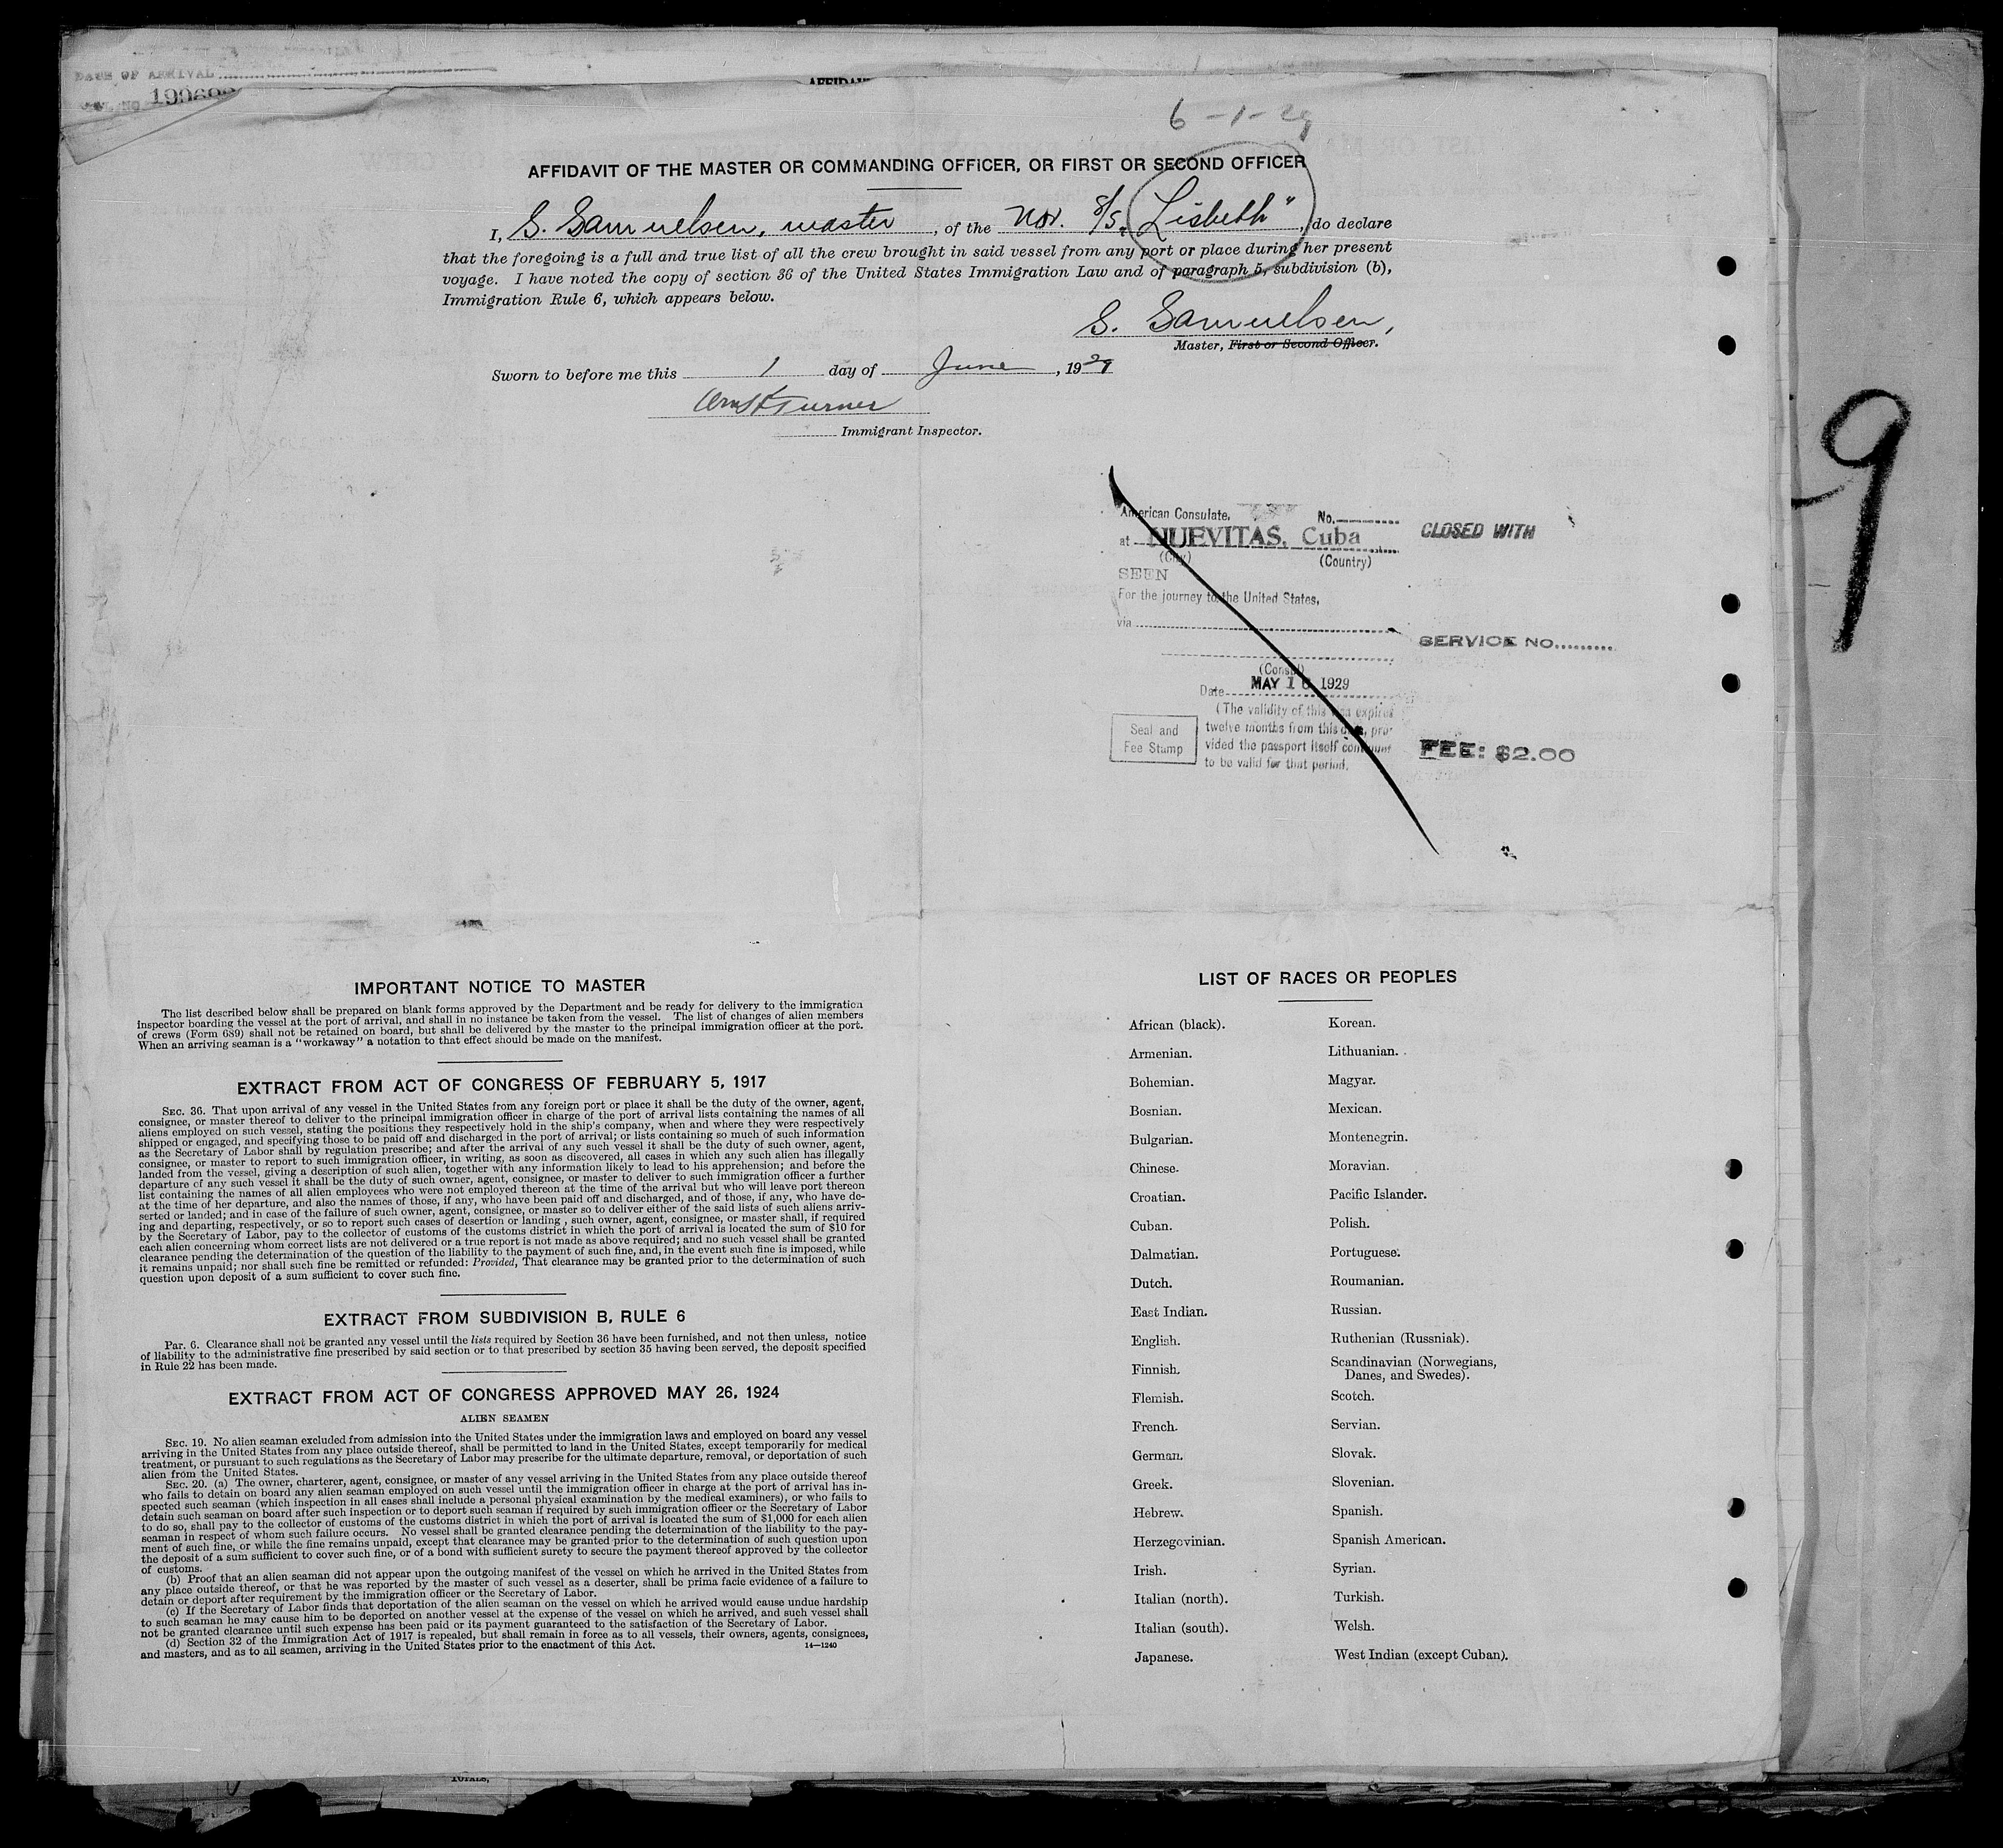 DATE OF ARRIVAL
AFFIDAV
6-1-29
AFFIDAVIT OF THE MASTER OR COMMANDING OFFICER, OR FIRST OR SECOND OFFICER
I, S. Samuelsen, master, of the Nor. S/S. "Lisbeth", do declare
that the foregoing is a full and true list of all the crew brought in said vessel from any port or place during her present
voyage. I have noted the copy of section 36 of the United States Immigration Law and of paragraph 5, subdivision (b),
Immigration Rule 6, which appears below.
S. Samuelsen,
Master, First or Second Officer.
Sworn to before me this 1 day of June, 1929
Turner
Immigrant Inspector.
9
American Consulate, No.
at NUEVITAS, Cuba
(City) (Country)
SEEN
For the journey to the United States,
via
(Consul)
Date MAY 1 1929
(The validity of this visa expires
twelve months from this date, pro-
vided the passport itself continues
to be valid for that period.
Seal and
Fee Stamp
CLOSED WITH
SERVICE NO.
FEE: $2.00
IMPORTANT NOTICE TO MASTER
The list described below shall be prepared on blank forms approved by the Department and be ready for delivery to the immigration
inspector boarding the vessel at the port of arrival, and shall in no instance be taken from the vessel. The list of changes of alien members
of crews (Form 689) shall not be retained on board, but shall be delivered by the master to the principal immigration officer at the port.
When an arriving seaman is a "workaway" a notation to that effect should be made on the manifest.
EXTRACT FROM ACT OF CONGRESS OF FEBRUARY 5, 1917
SEC. 36. That upon arrival of any vessel in the United States from any foreign port or place it shall be the duty of the owner, agent,
consignee, or master thereof to deliver to the principal immigration officer in charge of the port of arrival lists containing the names of all
aliens employed on such vessel, stating the positions they respectively hold in the ship's company, when and where they were respectively
shipped or engaged, and specifying those to be paid off and discharged in the port of arrival; or lists containing so much of such information
as the Secretary of Labor shall by regulation prescribe; and after the arrival of any such vessel it shall be the duty of such owner, agent,
consignee, or master to report to such immigration officer, in writing, as soon as discovered, all cases in which any such alien has illegally
landed from the vessel, giving a description of such alien, together with any information likely to lead to his apprehension; and before the
departure of any such vessel it shall be the duty of such owner, agent, consignee, or master to deliver to such immigration officer a further
list containing the names of all alien employees who were not employed thereon at the time of the arrival but who will leave port thereon
at the time of her departure, and also the names of those, if any, who have been paid off and discharged, and of those, if any, who have de-
serted or landed; and in case of the failure of such owner, agent, consignee, or master so to deliver either of the said lists of such aliens arriv-
ing and departing, respectively, or so to report such cases of desertion or landing , such owner, agent, consignee, or master shall, if required
by the Secretary of Labor, pay to the collector of customs of the customs district in which the port of arrival is located the sum of $10 for
each alien concerning whom correct lists are not delivered or a true report is not made as above required; and no such vessel shall be granted
clearance pending the determination of the question of the liability to the payment of such fine, and, in the event such fine is imposed, while
it remains unpaid; nor shall such fine be remitted or refunded: Provided, That clearance may be granted prior to the determination of such
question upon deposit of a sum sufficient to cover such fine.
EXTRACT FROM SUBDIVISION B, RULE 6
Par. 6. Clearance shall not be granted any vessel until the lists required by Section 36 have been furnished, and not then unless, notice
of liability to the administrative fine prescribed by said section or to that prescribed by section 35 having been served, the deposit specified
in Rule 22 has been made.
EXTRACT FROM ACT OF CONGRESS APPROVED MAY 26, 1924
ALIEN SEAMEN
SEC. 19. No alien seaman excluded from admission into the United States under the immigration laws and employed on board any vessel
arriving in the United States from any place outside thereof, shall be permitted to land in the United States, except temporarily for medical
treatment, or pursuant to such regulations as the Secretary of Labor may prescribe for the ultimate departure, removal, or deportation of such
alien from the United States.
SEC. 20. (a) The owner, charterer, agent, consignee, or master of any vessel arriving in the United States from any place outside thereof
who fails to detain on board any alien seaman employed on such vessel until the immigration officer in charge at the port of arrival has in-
spected such seaman (which inspection in all cases shall include a personal physical examination by the medical examiners), or who fails to
detain such seaman on board after such inspection or to deport such seaman if required by such immigration officer or the Secretary of Labor
to do so, shall pay to the collector of customs of the customs district in which the port of arrival is located the sum of $1,000 for each alien
seaman in respect of whom such failure occurs. No vessel shall be granted clearance pending the determination of the liability to the pay-
ment of such fine, or while the fine remains unpaid, except that clearance may be granted prior to the determination of such question upon
the deposit of a sum sufficient to cover such fine, or of a bond with sufficient surety to secure the payment thereof approved by the collector
of customs.
(b) Proof that an alien seaman did not appear upon the outgoing manifest of the vessel on which he arrived in the United States from
any place outside thereof, or that he was reported by the master of such vessel as a deserter, shall be prima facie evidence of a failure to
detain or deport after requirement by the immigration officer or the Secretary of Labor.
(c) If the Secretary of Labor finds that deportation of the alien seaman on the vessel on which he arrived would cause undue hardship
to such seaman he may cause him to be deported on another vessel at the expense of the vessel on which he arrived, and such vessel shall
not be granted clearance until such expense has been paid or its payment guaranteed to the satisfaction of the Secretary of Labor.
(d) Section 32 of the Immigration Act of 1917 is repealed, but shall remain in force as to all vessels, their owners, agents, consignees,
and masters, and as to all seamen, arriving in the United States prior to the enactment of this Act. 14—1240
LIST OF RACES OR PEOPLES
African (black). Korean.
Armenian. Lithuanian.
Bohemian. Magyar.
Bosnian. Mexican.
Bulgarian. Montenegrin.
Chinese. Moravian.
Croatian. Pacific Islander.
Cuban. Polish.
Dalmatian. Portuguese.
Dutch. Roumanian.
East Indian. Russian.
English. Ruthenian (Russniak).
Finnish. Scandinavian (Norwegians,
Danes, and Swedes).
Flemish. Scotch.
French. Servian.
German. Slovak.
Greek. Slovenian.
Hebrew. Spanish.
Herzegovinian. Spanish American.
Irish. Syrian.
Italian (north). Turkish.
Italian (south). Welsh.
Japanese. West Indian (except Cuban).
TOTALS,